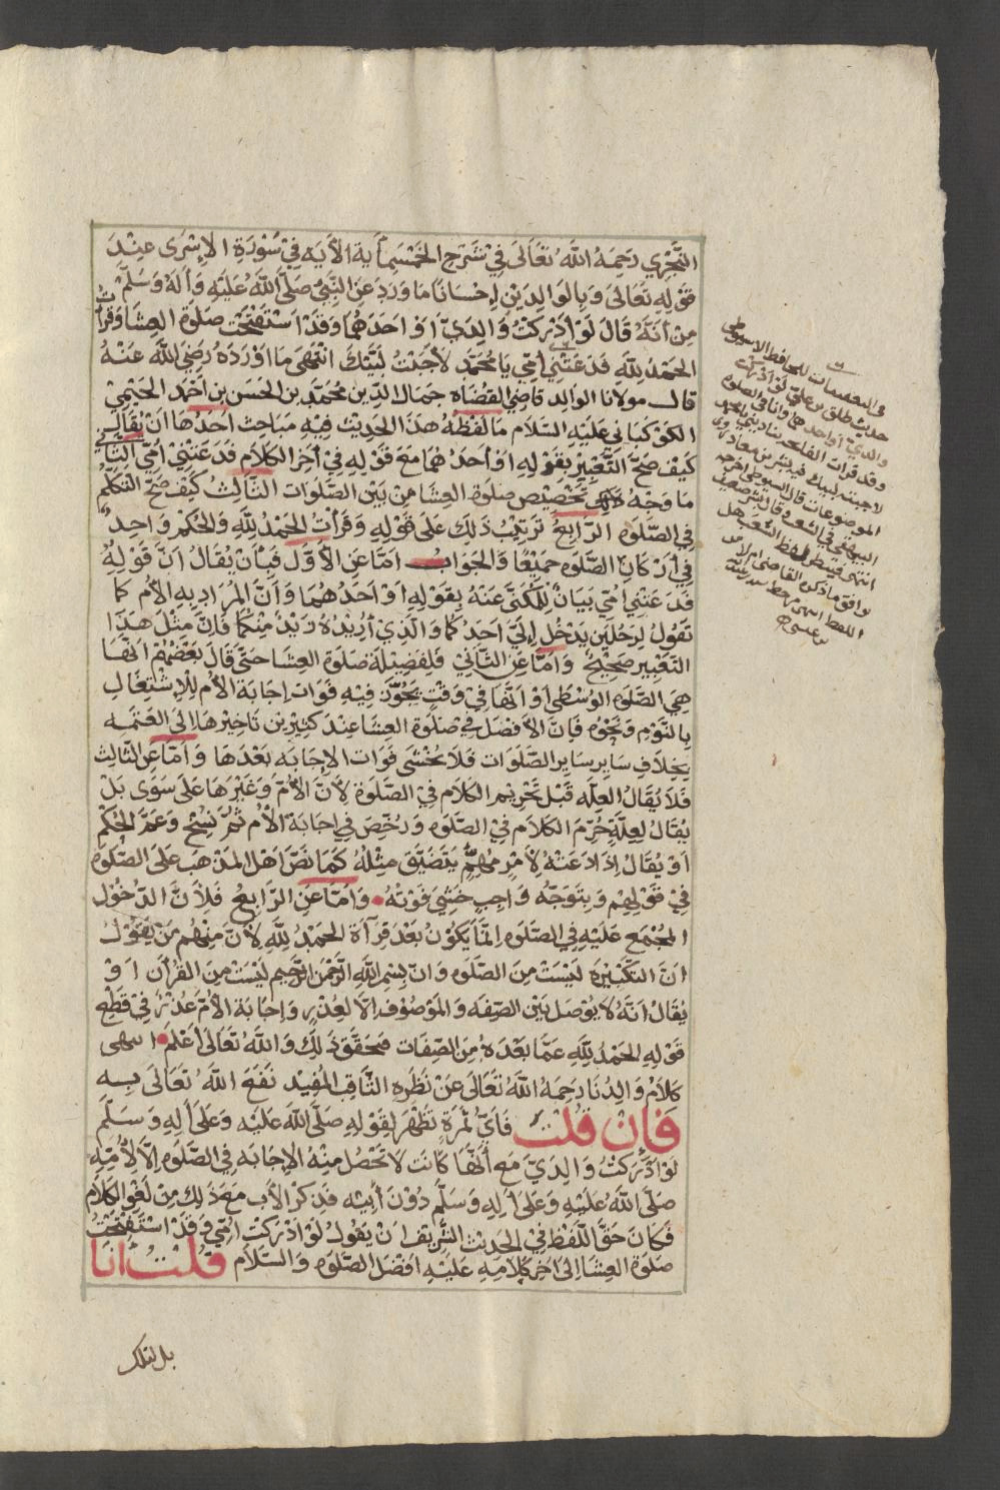 النَّجْرِي رَحِمَهُ اللَّهُ تَعَالَى فِيْ شَرْحِ الخَمْسِمِأيَة الأَيَه فِيْ سُوْرَةِ الإسْرَى عِنْدَ
قَوْلِهِ تَعَالَى وَبِالوَالِدَيْنِ إحْسَانًا مَا وَرَدَ عَنِ النَّبِيِّ صَلَّى اللَّهُ عَلَيْهِ وَألَهُ وَسَلَّمَ
مِنْ أنَّهُ قَالَ لَوْ أدْرَكْتُ وَالِدَيَّ اوْ احَدَهُمَا وَقَدْ اسْتَفْتَحْتُ صَلَوةَ العِشَا وَقَرَأتُ
الحَمْدُ لِلَّهِ فَدَعَتْنِي أمِّي يَا مُحَمَّد لأجَبْتُ لَبَّيْكَ انْتَهَى مَا اوْرَدَهُ رَضِيَ اللَّه عَنْهُ
قال مولانا الوَالِد قاضِي القُضَاه جَمَال الدِّين مُحَمَّد بن الحَسَن بن احْمَد الحَيْمِي
الكَوْكَبَانِي عَلَيْهِ السَّلاَم مَا لَفْظُهُ هَذَا الحَدِيْث فِيْهِ مَبَاحِث أحَدُهَا انْ يُقَالَ
كَيْفَ صَحَّ التَّعْبِيْرِ بِقَوْلِهِ اوْ أحَدهُمَا مَعَ قَوْلِهِ فِيْ أخِرِ الكَلاَمِ فَدَعَتْنِيْ أمِّي الثَّانِي
مَا وَجْهُ تَخْصِيْصِ صَلوةِ العِشَا مِنْ بَيْنِ الصَّلَوَات الثَّالِثُ كَيْفَ صَحَّ التَّكَلُّمُ
فِي الصَّلَوه الرَّابِعُ تَرتِيْبُ ذَلِكَ عَلَى قَوْلِهِ وَقَرَأتُ الحَمْدُ لِلَّهِ وَالحُكْمُ وَاحِدٌ
فِيْ أرْكَانِ الصَّلَوه جَمِيْعًا وَالجَوَابُ امَّا عَنِ الأَوَّلِ فَبِأنْ يُقَالُ انَّ قَوْلَهُ
فَدَعَتْنِي أمِّي بَيَانٌ لِلْمُكَنَّى عَنْهُ بِقَوْلِهِ اوْ احَدهُمَا وَأنَّ المُرَادَ بِهِ الأمّ كَمَا
تَقُوْلُ لِرَجُلَيْنِ يَدْخُل إلَيَّ احَدكُمَا وَالَّذِي أرِيْدُهُ زَيْدٌ مِنْكُمَا فَإنَّ مِثْلَ هَذَا
التَّعْبِيْرِ صَحِيْحٌ وَامَّا عَنِ الثَّانِيْ فَلِفَضِيْلَة صَلَوة العِشَا حَتَّى قَالَ بَعْضُهُمْ انَّهَا
هِيَ الصَّلَوه الوُسْطَى اوْ انَّهَا فِيْ وَقْتٍ يَجُوْز فِيْهِ فَوَات إجَابَة الأم لِلْإشْتِغَالِ
بِالنَّوْمِ وَنَحْوِهِ فَإنَّ الأفْضَلَ فِي صَلَوة العِشَا عِنْدَ كَثِيْرِيْن تَاخِيْرهَا الَى العَتَمَه
بِخِلاَفِ سَايِر سَايِر الصَّلَوَات فَلاَ يُخْشَى فَوَات الإجَابَه بَعْدَهَا وَأمَّا عَنِ الثَّالِث
فَلاَ يُقَالُ العِلَّه قَبْلَ تَحْرِيْمِ الكَلاَم فِي الصَّلَوة لأنَّ الأمّ وَغَيْرَهَا عَلَى سَوَى بَلْ
يُقَالُ لِعِلَّةٍ حُرِّمَ الكَلاَم فِي الصَّلَوه وَرُخِّصَ فِي إجَابَة الأم ثُمَّ نُسِخَ وَعَمَّ الحُكْم
اوْ يُقَالُ إذَا دَعَتْهُ لِأمْرٍ مُهِمٍّ يَتَضَيَّق مِثْلُهُ كَمَا نَصَّ اهْل المَذْهَب عَلَى الصَّلَوه
فِيْ قَوْلِهِمْ وَبِتَوَجُّهِ وَاجِبٍ خَشِيَ فَوْتَهُ وَامَّا عَنِ الرَّابِعِ فَلِأنَّ الدُّخُوْلَ
المُجْمَع عَلَيْهِ فِي الصَّلَوه إنَّمَا يَكُوْنُ بَعْدَ قِرآةِ الحَمْدُ لِلَّهِ لأنَّ مِنْهُمْ مَنْ يَقُوْلُ
انَّ التَّكْبِيْرَة لَيْسَتْ مِنَ الصَّلَوه وَانّ بِسْمِ اللَّهِ الرَّحْمَنِ الرَّحِيْمِ لَيْسَتْ مِنَ القُرْأنِ اوْ
يُقَالُ انَّهُ لاَ يُوْصَل بَيْنَ الصِّفَه وَالمَوْصُوْفِ إلاَّ لِعُذْرٍ وَإجَابَة الأمّ عُذْرٌ فِيْ قَطْعِ
قَوْلِهِ الحَمْدُ لِلَّهِ عَمَّا بَعْدَهُ مِنَ الصِّفَات فَتَحَقَّقَ ذَلِكَ وَاللَّهُ تَعَالَى أعْلَم انتهى
كَلاَمُ وَالِدُنَا رَحِمَهُ اللَّهُ تَعَالَى عَنْ نَظَرِهِ الثَّاقِبِ المُفِيْدِ نَفَعَ اللَّهُ تَعَالَى بِهِ
فَإنْ قُلْتَ فَأيُّ ثَمَرَةٍ تَظْهَرُ لِقَوْلِهِ صَلَّى اللَّهُ عَلَيْهِ وَعَلَى ألِهِ وَسَلَّمَ
لَوْ ادْرَكْتُ وَالِدَيَّ مَعَ أنَّهَا كَانَت لاَ تَحْصُل مِنْهُ الإجَابَه فِي الصَّلَوه إلاَّ لأُمِّهِ
صَلَّى اللَّهُ عَلَيْهِ وَعَلَى ألِهِ وَسَلَّمَ دُوْنَ أبِيْهِ فَذِكْرُ الأَب مَعَ ذَلِكَ مِنْ لَغْوِ الكَلاَم
فَكَانَ حَقُّ اللَّفْظ فِي الحَدِيْث الشَّرِيْف انْ يَقُوْلُ لَوْ ادْرَكْتُ أُمِّي وَقَدْ اسْتَفْتَحْتُ
صَلوَة العِشَا الى اخِرِ كَلاَمِهِ عَلَيْهِ افْضَل الصَّلَوه وَالسَّلاَم قُلْتُ أنَا
بل لتلك
في التعقبات للحافظ الاسيوطي
حديث طلق بن علي لو ادركت
والديّ أو احدهما وانا في الصلوه
وقد قرات الفاتحه ينادي يا محمد
لاجبته لبيك فيه يس بن معاذ يروي
الموضوعات قال السيوطي اخرجه
البيهقي في الشعب وقال يس ضعيف
انتهى لفظ الشعب هل
وافق ما ذكره القاضي ام لا